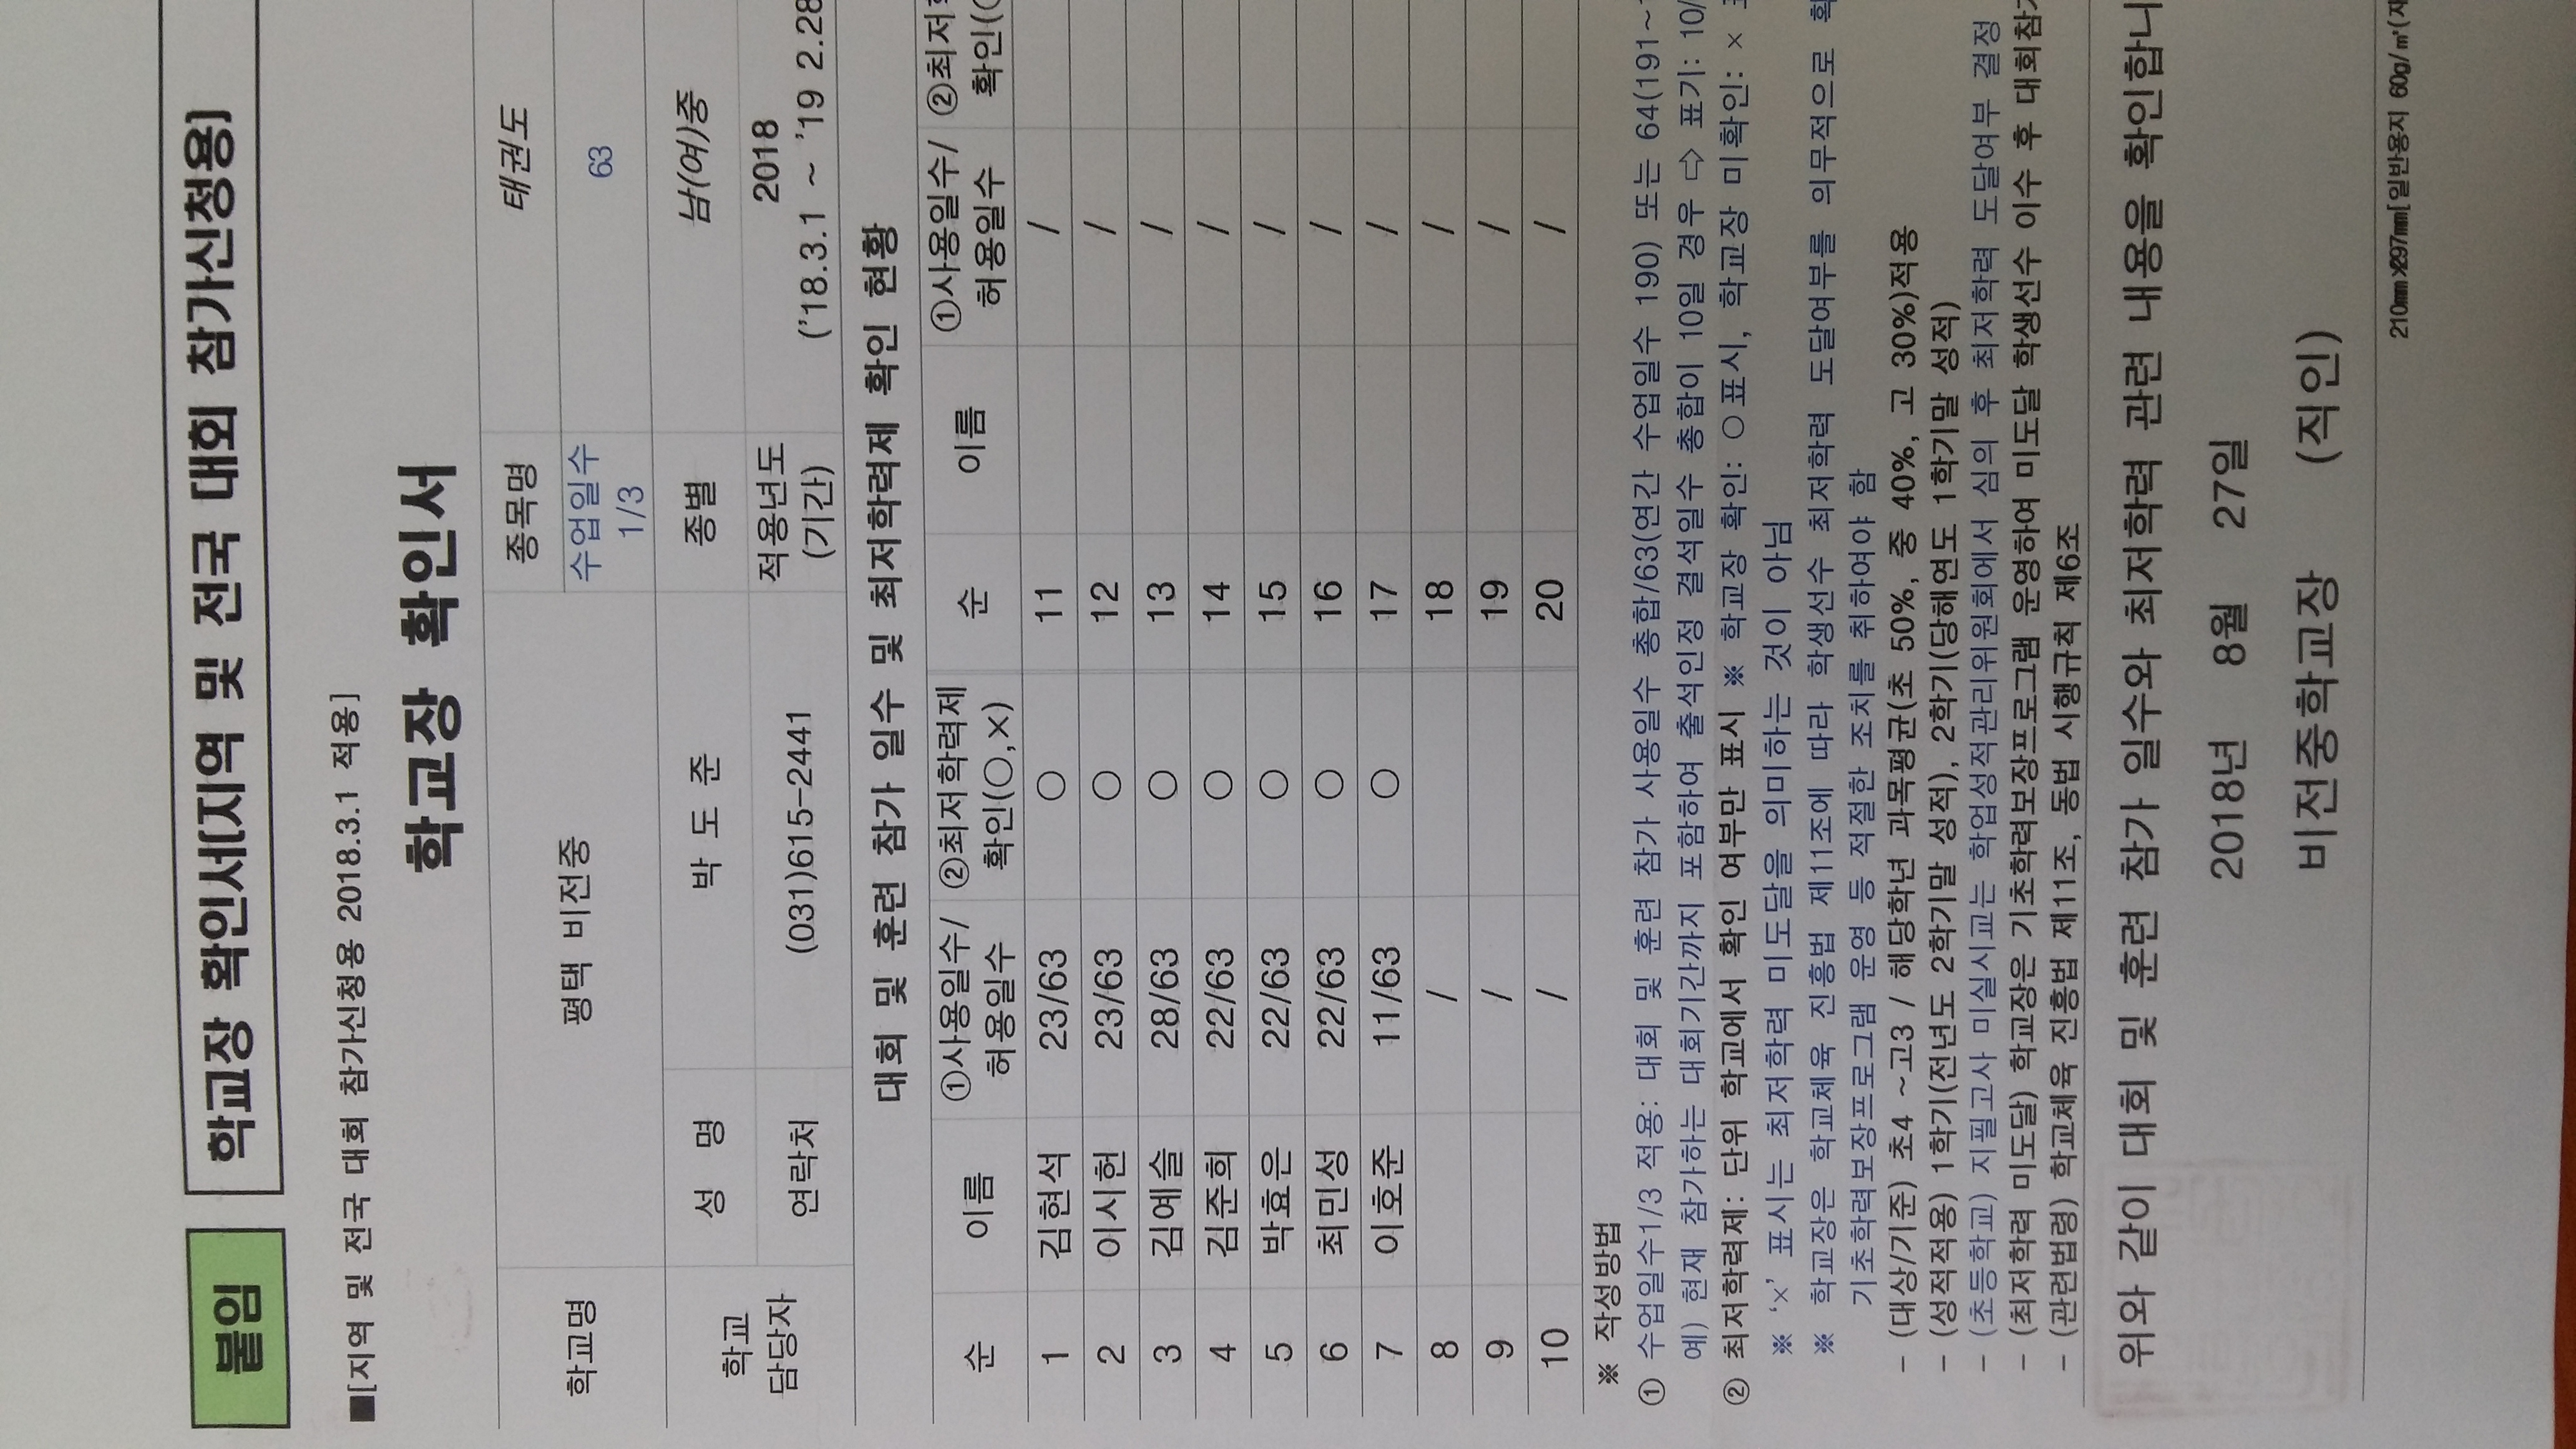 붙임 학교장 확인서(지역 및 전국 대회 참가신청용)
■[지역 및 전국 대회 참가신청용 2018.3.1 적용]
학교장 확인서
학교명 평택 비전중 종목명 태권도
수업일수 1/3 63
학교 담당자 성 명 박 도 준 종별 남(여)중
연락처 (031)615-2441 적용년도 (기간) 2018 ('18.3.1 ~ '19 2.28
대회 및 훈련 참가 일수 및 최저학력제 확인 현황
순 이름 ①사용일수/허용일수 ②최저학력제 확인(○,×) 순 이름 ①사용일수/허용일수 ②최저 확인(
1 김현석 23/63 ○ 11 /
2 이시헌 23/63 ○ 12 /
3 김예슬 28/63 ○ 13 /
4 김준희 22/63 ○ 14 /
5 박효은 22/63 ○ 15 /
6 최민성 22/63 ○ 16 /
7 이호준 11/63 ○ 17 /
8 / 18 /
9 / 19 /
10 / 20 /
※ 작성방법
① 수업일수1/3 적용: 대회 및 훈련 참가 사용일수 총합/63(연간 수업일수 190) 또는 64(191~
예) 현재 참가하는 대회기간까지 포함하여 출석인정 결석일수 총합이 10일 경우 ⇨ 표기: 10/
② 최저학력제: 단위 학교에서 확인 여부만 표시 ※ 학교장 확인: ○표시, 학교장 미확인: ×
※ '×' 표시는 최저학력 미도달을 의미하는 것이 아님
※ 학교장은 학교체육 진흥법 제11조에 따라 학생선수 최저학력 도달여부를 의무적으로
기초학력보장프로그램 운영 등 적절한 조치를 취하여야 함
- (대상/기준) 초4 ~고3 / 해당학년 과목평균(초 50%, 중 40%, 고 30%)적용
- (성적적용) 1학기(전년도 2학기말 성적), 2학기(당해연도 1학기말 성적)
- (초등학교) 지필고사 미실시교는 학업성적관리위원회에서 심의 후 최저학력 도달여부 결정
- (최저학력 미도달) 학교장은 기초학력보장프로그램 운영하여 미도달 학생선수 이수 후 대회참
- (관련법령) 학교체육 진흥법 제11조, 동법 시행규칙 제6조
위와 같이 대회 및 훈련 참가 일수와 최저학력 관련 내용을 확인합니
2018년 8월 27일
비전중학교장 (직인)
210mm×297mm[일반용지 60g/㎡(재